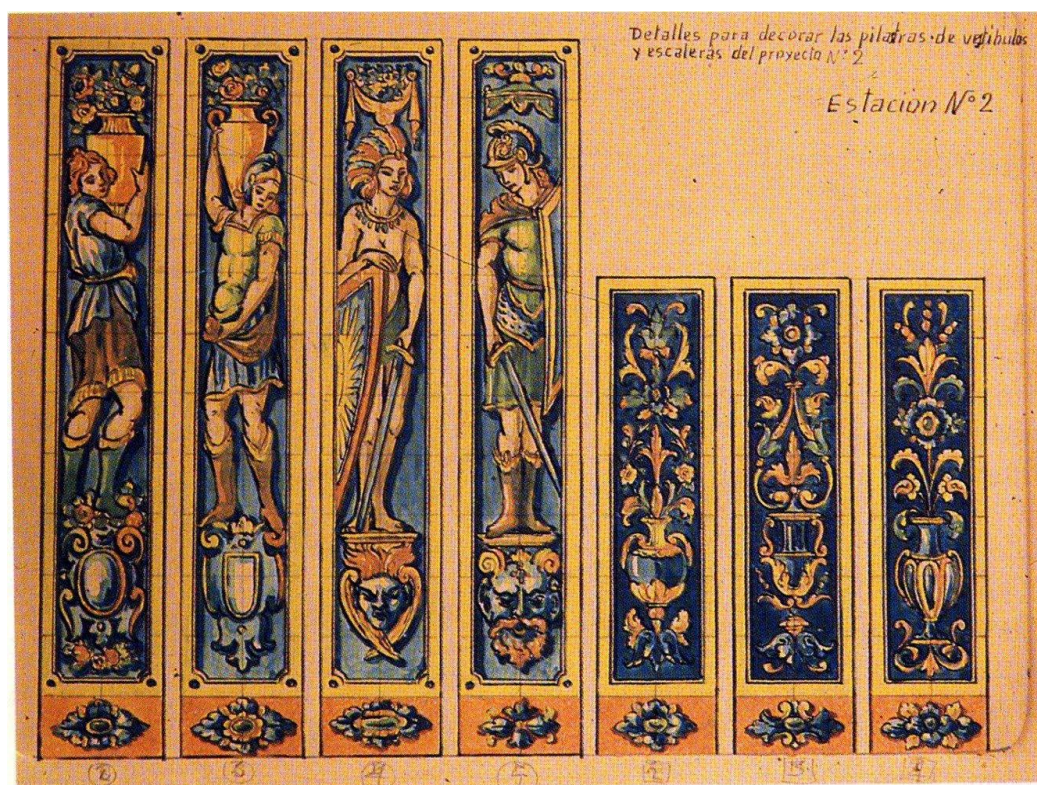 Detalles para decorar las pilastras de vestibulos
y escaleras del proyecto Nº 2
Estacion Nº 2
2 3 4 5 2 3 4